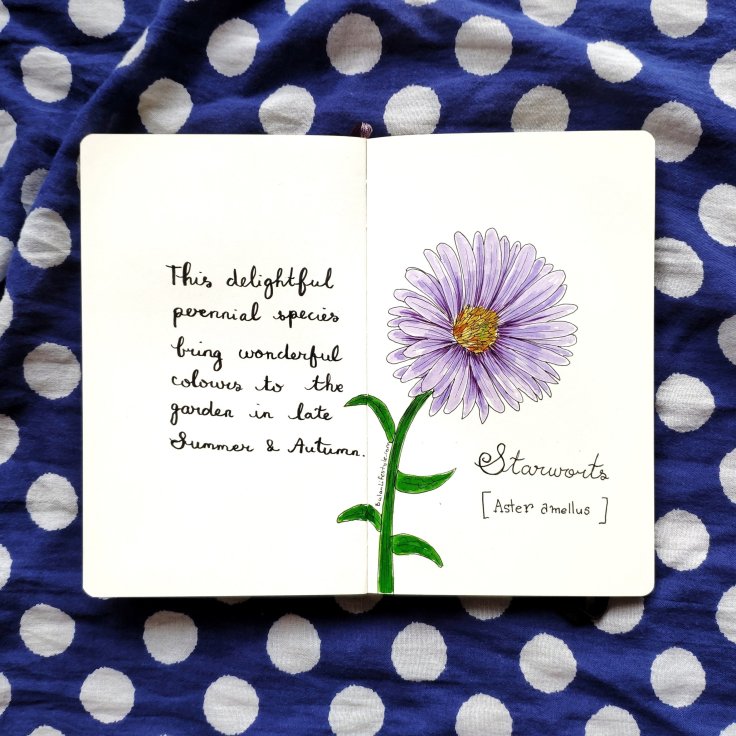 This delightful
perennial species
bring wonderful
colours to the
garden in late
Summer & Autumn.
Starworts
[Aster amellus]